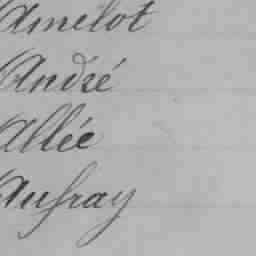 Amelot
André
Allée
Aufray